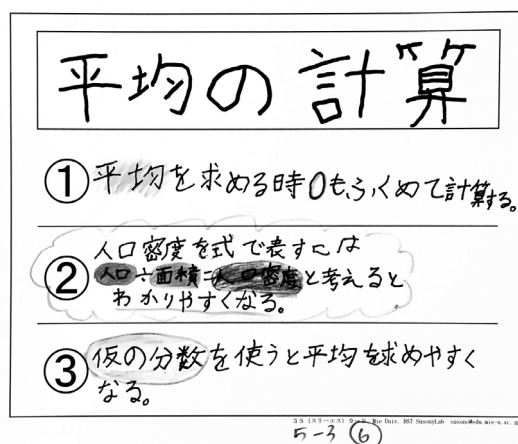 平均の計算
①平均を求める時0もふくめて計算する。
人口密度を式で表すには
②人口÷面積=人口密度と考えると
わかりやすくなる。
③仮の分数を使うと平均を求めやすく
なる。
3S (スリーエス) カード Mie Univ. DST SusonyLab susono@edu.mie-u.ac.jp
5-3 ⑥